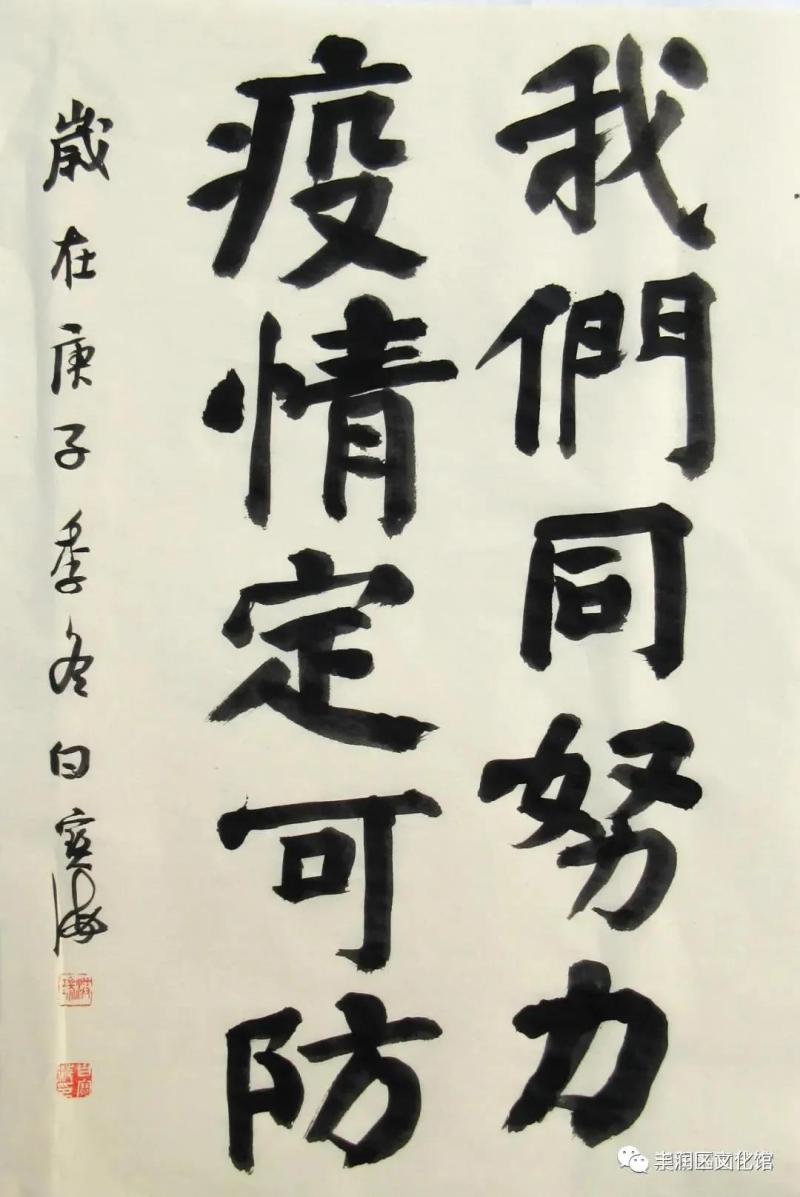 我們同努力
疫情定可防
歲在庚子季冬白寶海
丰润区文化馆